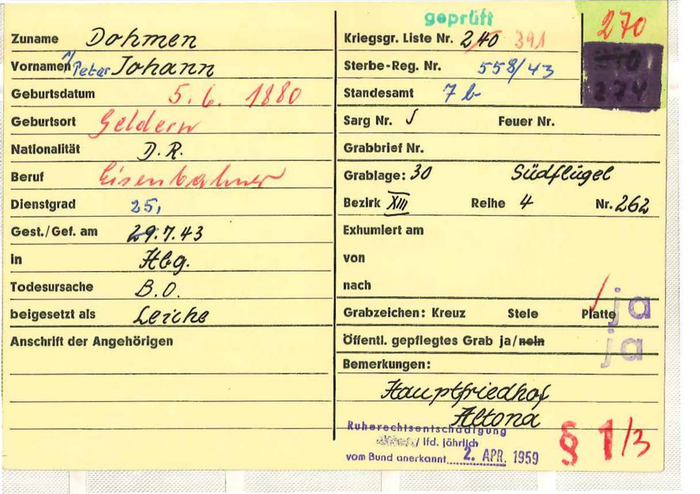 geprüft
270
Zuname Dohmen
Kriegsgr. Liste Nr. 240 391
Vornamen Peter Johann
Sterbe-Reg. Nr. 558/43
274
Geburtsdatum 5.6.1880
Standesamt 7b
Geburtsort Geldern
Sarg Nr. Feuer Nr.
Nationalität D.R.
Grabbrief Nr.
Beruf Eisenbahner
Grablage: 30 Südflügel
Dienstgrad 25,
Bezirk XIII Reihe 4 Nr. 262
Gest./Gef. am 29.7.43
Exhumiert am
in Hbg.
von
Todesursache B.O.
nach
beigesetzt als Leiche
Grabzeichen: Kreuz Stele Platte ja
Anschrift der Angehörigen
Öffentl. gepflegtes Grab ja/nein ja
Bemerkungen:
Hauptfriedhof
Altona
Ruherechtsentschädigung
/ lfd. jährlich
vom Bund anerkannt 2. APR. 1959
§ 1/3